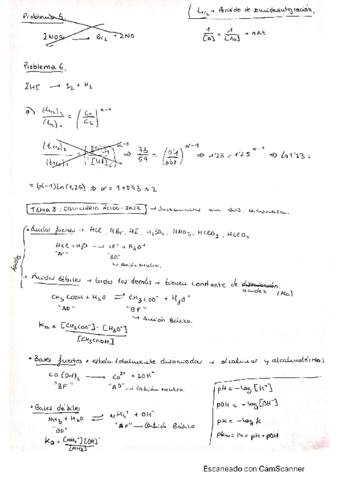 Problema 5.
2NOBr → Br2 + 2NO
t1/2 = Periodo de semidesintegración.
1/[A] = 1/[A0] + akt
Problema 6.
2HI → I2 + H2
a) (t1/2)2 / (t1/2)1 = (C1/C2)^(α-1)
⇒ 73/59 = (0'1/0'08)^(α-1) ⇒ 1'23 = 1'25^(α-1) ⇒ Ln 1'23 =
= (α-1) Ln(1,25) ⇒ α = 1+0'93 ≈ 2
TEMA 3: EQUILIBRIO ÁCIDO-BASE
Ácidos
• Ácidos fuertes → HCl, HBr, HI, H2SO4, HNO3, HClO3, HClO4
HCl + H2O → Cl- + H3O+
"AF" "BD"
↳ Anión Neutro.
• Ácidos débiles → todos los demás → tienen constante de acidez (Ka)
CH3COOH + H2O ⇌ CH3COO- + H3O+
"AD" "BF"
↳ Anión Básico.
Ka = [CH3COO-]·[H3O+] / [CH3COOH]
• Bases fuertes → están totalmente disociadas → alcalinos y alcalinotérreos
Ca(OH)2 → Ca2+ + 2OH-
"BF" "AD" → Catión neutro.
• Bases débiles
NH3 + H2O ⇌ NH4+ + OH-
"BD" "AF" → Catión
Kb = [NH4+][OH-] / [NH3]
pH = -log [H+]
pOH = -log [OH-]
pK = -log K
pKw = 14 = pH + pOH
Escaneado con CamScanner